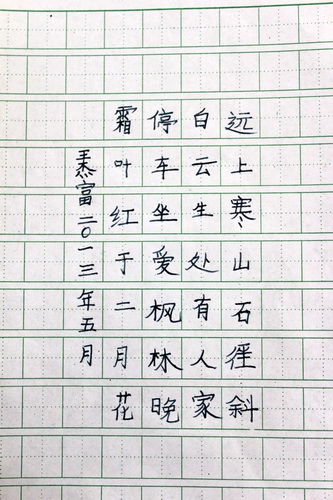 远上寒山石径斜
白云生处有人家
停车坐爱枫林晚
霜叶红于二月花
富二〇一三年五月